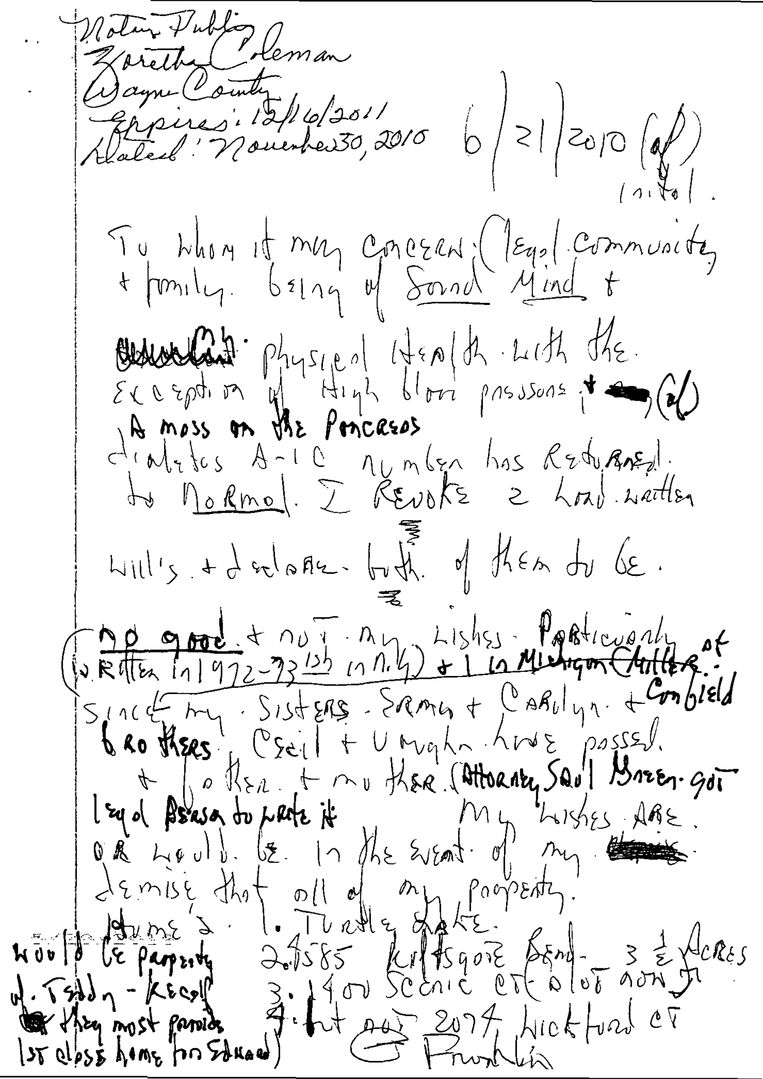 Notary Public
Zoretha Coleman
Wayne County
Expires: 12/16/2011
Dated: November 30, 2010
6/21/2010 (af)
inital.
To whom it may concern: (legal community
+ family. being of Sound Mind +
physical Health with the
exception of High bloon pressure; + (af)
A mass on the Pancreas
diabetes A-1C number has Returned
to Normal. I Revoke 2 hand written
will's + declare both of them to be
no good + not my wishes. Particularly
(written in 1972-73 ish in N.Y) + 1 in Michigan (Miller of
Canfield
Since my Sisters - Erma + Carolyn. +
brothers Cecil + Vaughn have passed.
+ father + mother. (Attorney Saul Green got
legal person to write it
My wishes ARE
or would be in the event of my
demise that all of my property.
Home's 1. Turtle Lake.
would be property 2. 4585 Kiftsgate Bend - 3 1/2 Acres
of Teddy - Kecalf 3. 1400 Scenic CT - A lot now
they must provide 4. but not 2074 Wickford CT
1st class home for Edward)
Franklin